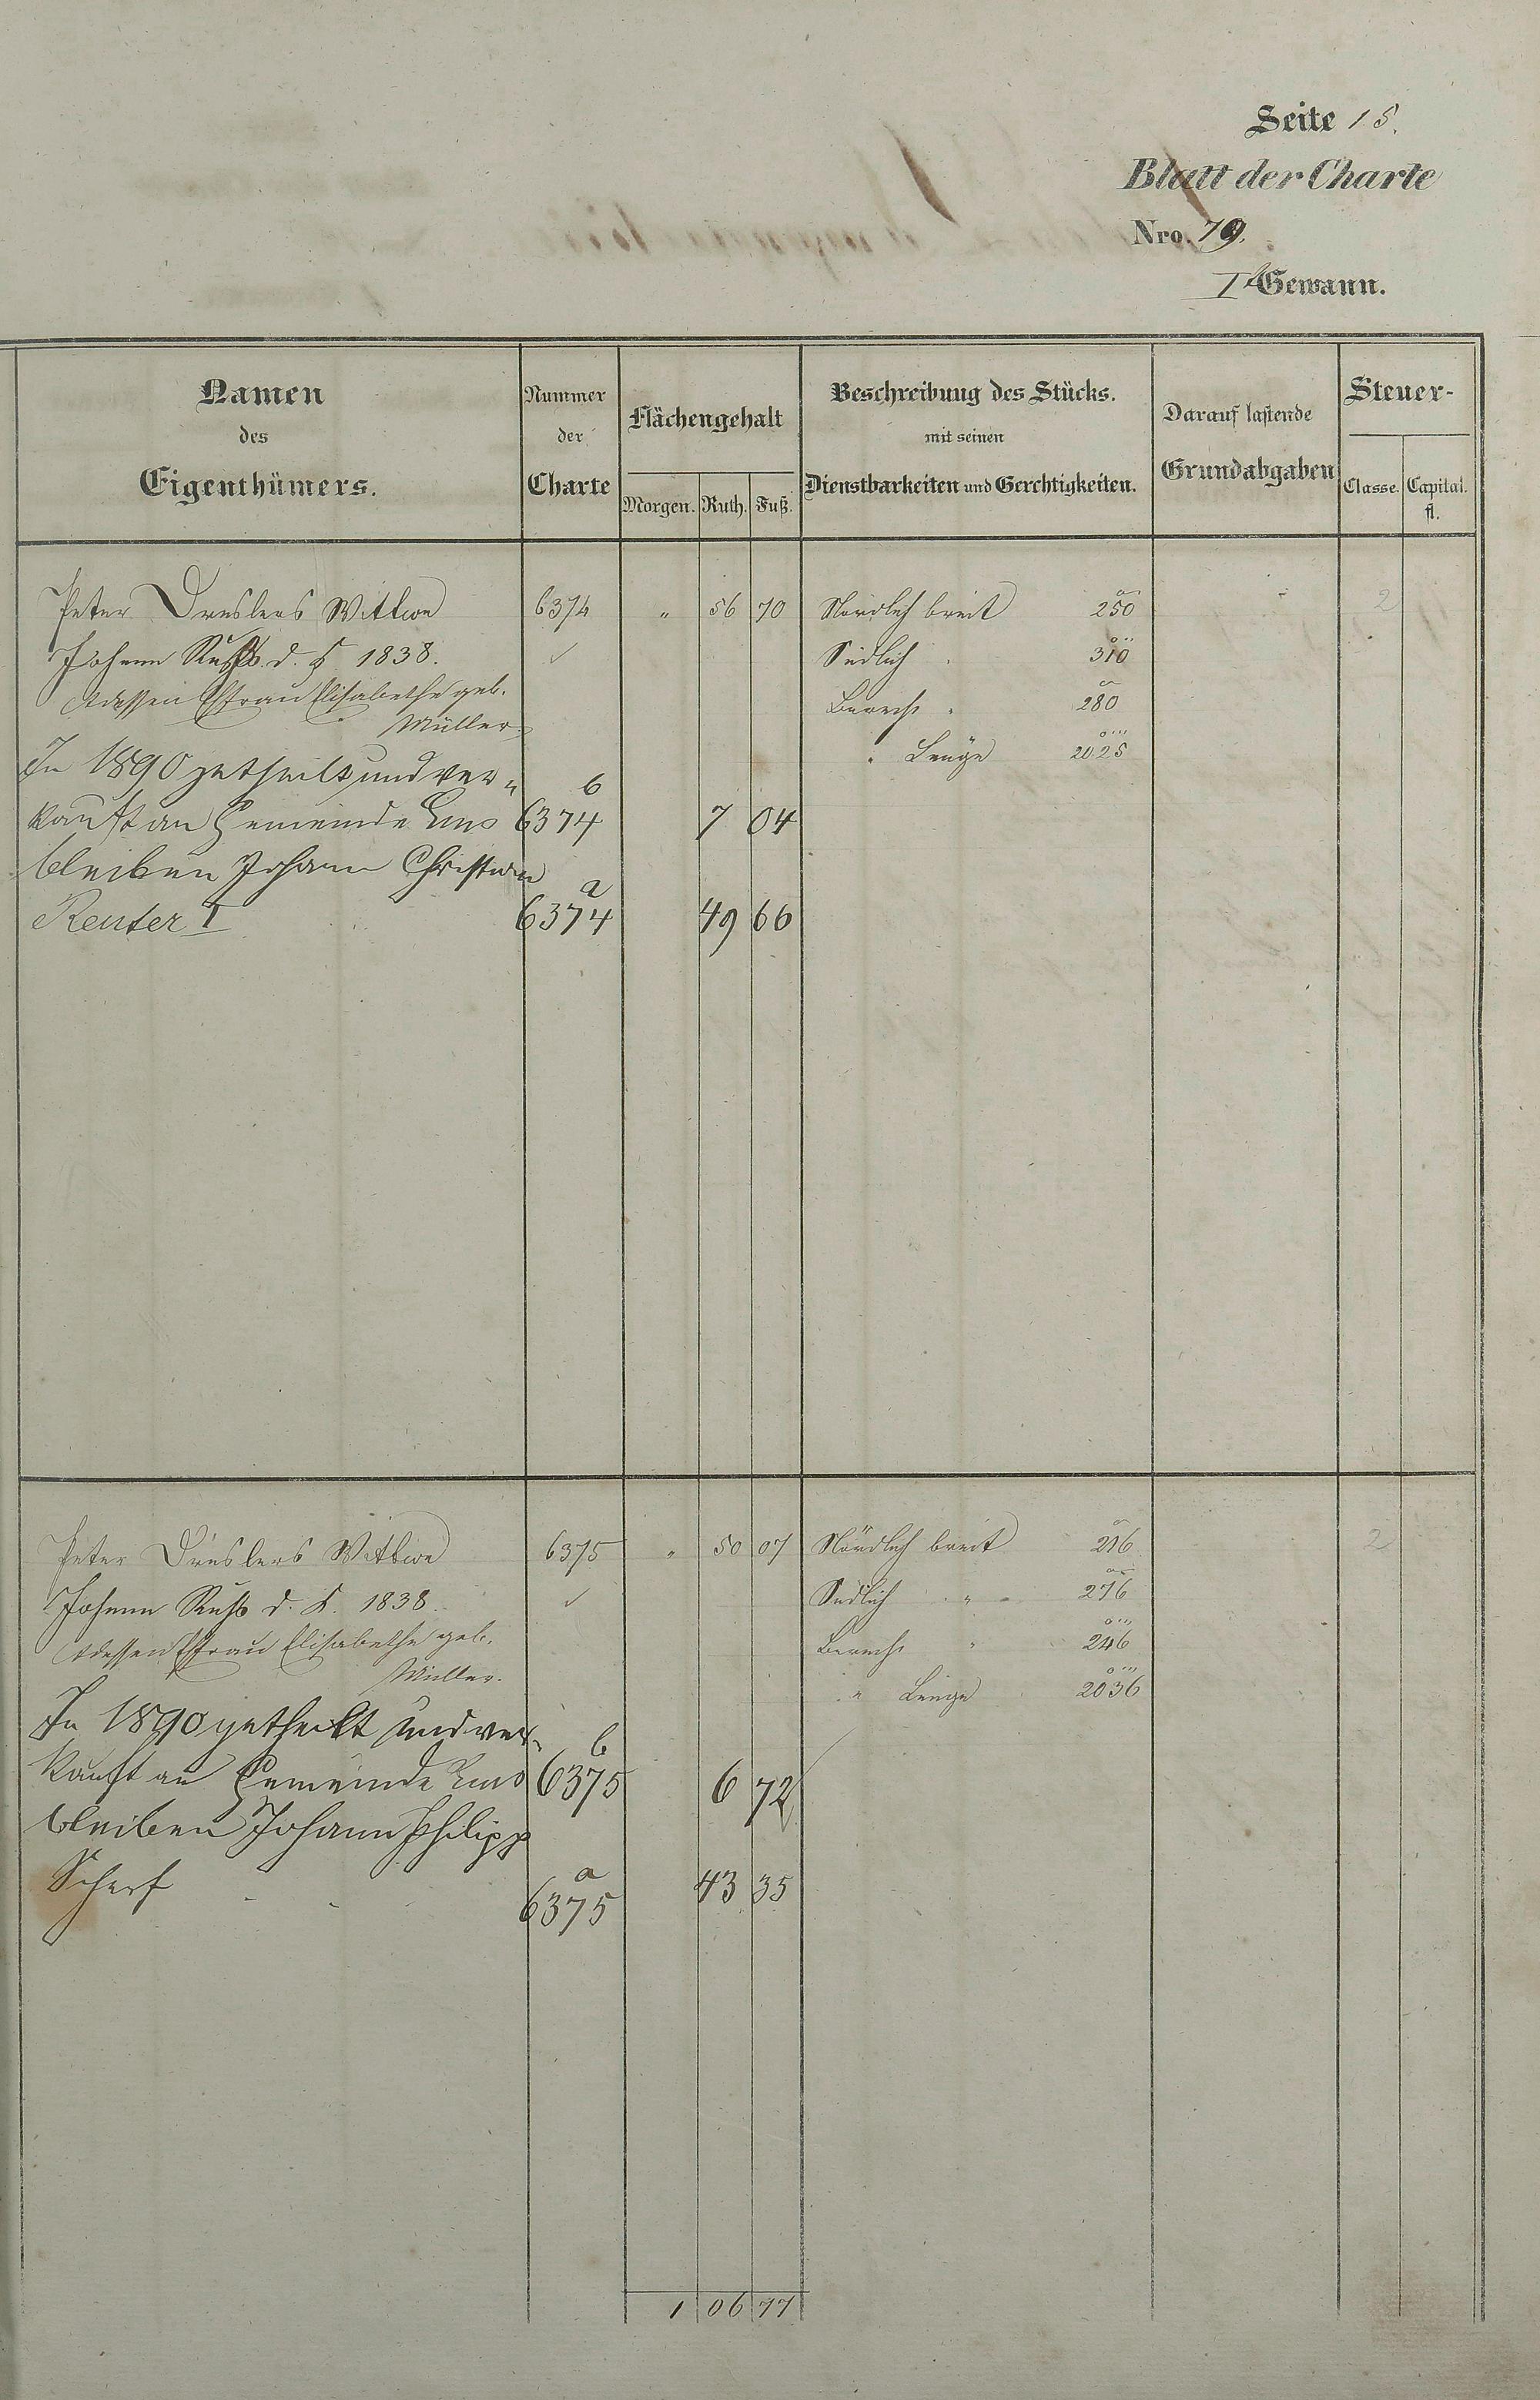 Seite 15.
Blatt der Charte
Nro. 79.
I Gewann.
Namen des Eigenthümers.
Nummer der Charte
Flächengehalt
Morgen. Ruth. Fuß.
Beschreibung des Stücks.
mit seinen
Dienstbarkeiten und Gerechtigkeiten.
Darauf lastende
Grundabgaben
Steuer-
Classe. Capital.
fl.
Peter Dreslers Wittwe 6374 " 56 70 Nördlich breit 250 2
Johann d. 1838. Südlich 310
dessen Elisabethe geb. 280
Müller
" Länge 2025
In 1890 getheilt und ver- b
kauft an Gemeinde Ems 6374 7 04
bleiben Johann Christian a
Reuter I 6374 49 66
Peter Dreslers Wittwe 6375 " 50 07 Nördlich breit 216 2
Johann d. 1838 Südlich " 276
dessen Elisabethe geb. " 246
Müller.
" Länge 2036
In 1890 getheilt und ver- b
kauft an Gemeinde Ems 6375 6 72
bleiben Johann Philipp
Scharf a 6375 43 35
1 06 77